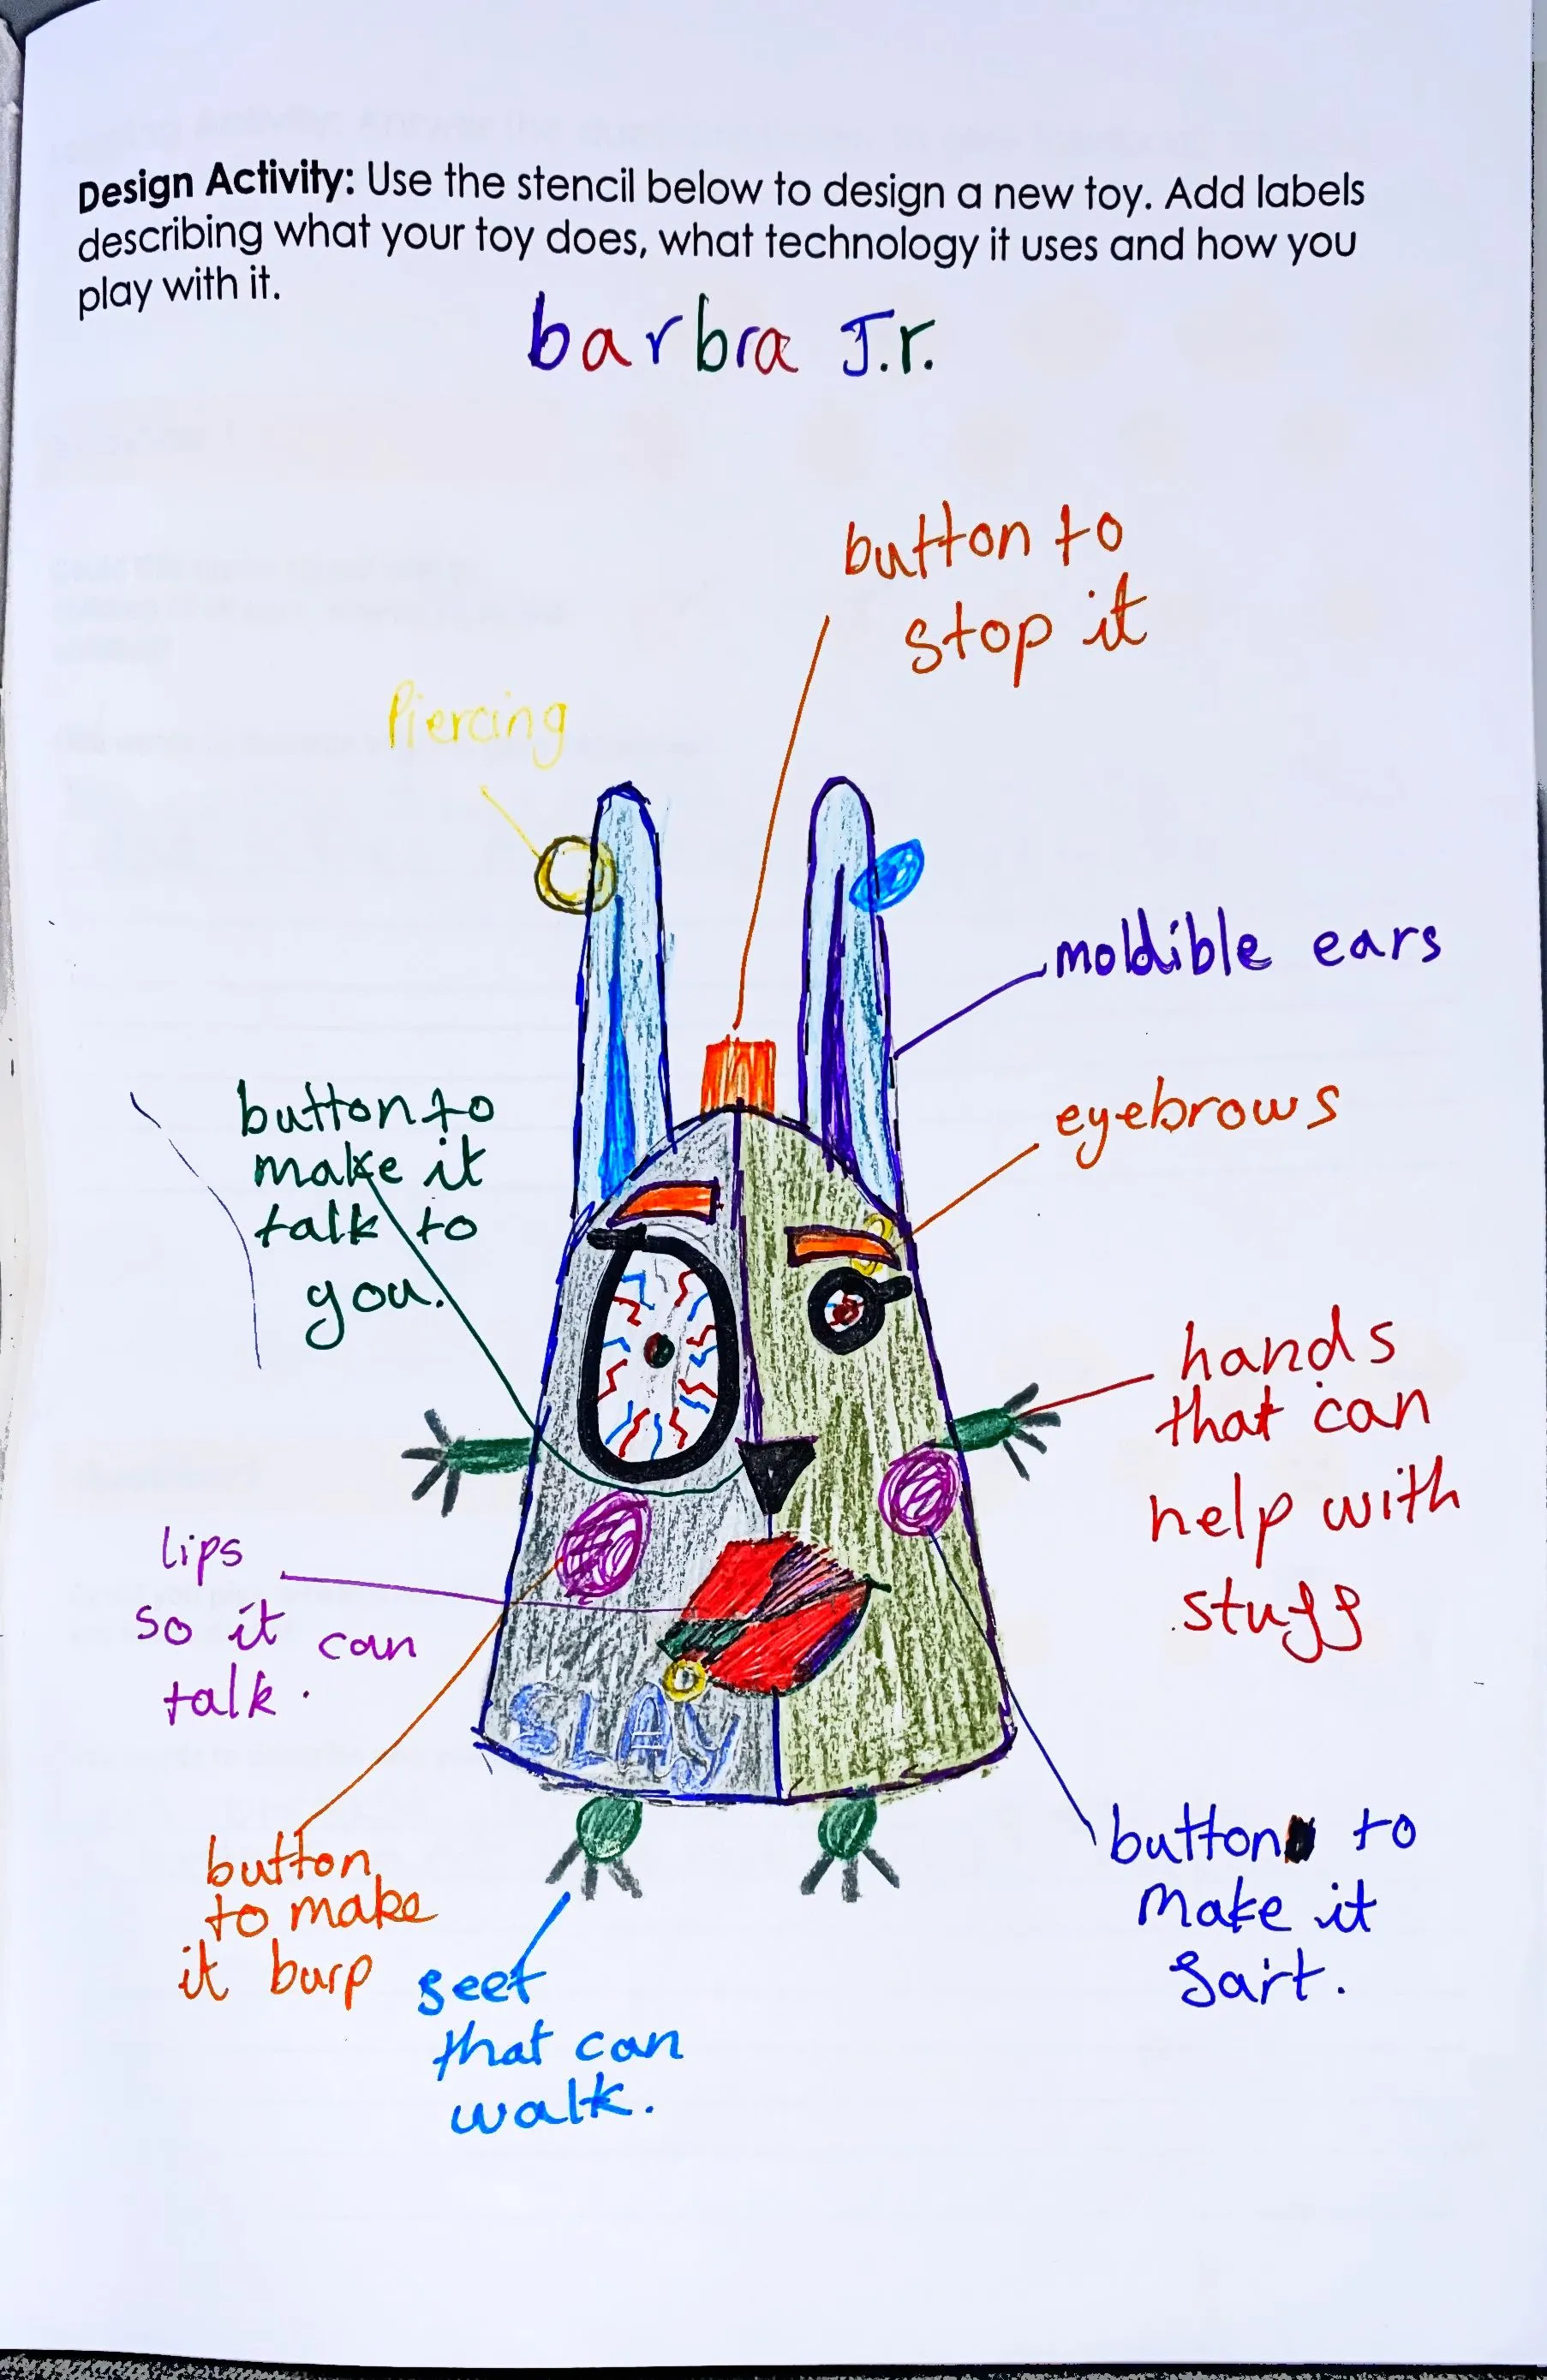 Design Activity: Use the stencil below to design a new toy. Add labels
describing what your toy does, what technology it uses and how you
play with it.
barbra J.r.
button to
stop it
Piercing
moldible ears
button to
make it
talk to
you.
eyebrows
hands
that can
help with
stuff
lips
so it can
talk.
SLAY
button
to make
it burp
button to
make it
fart.
feet
that can
walk.